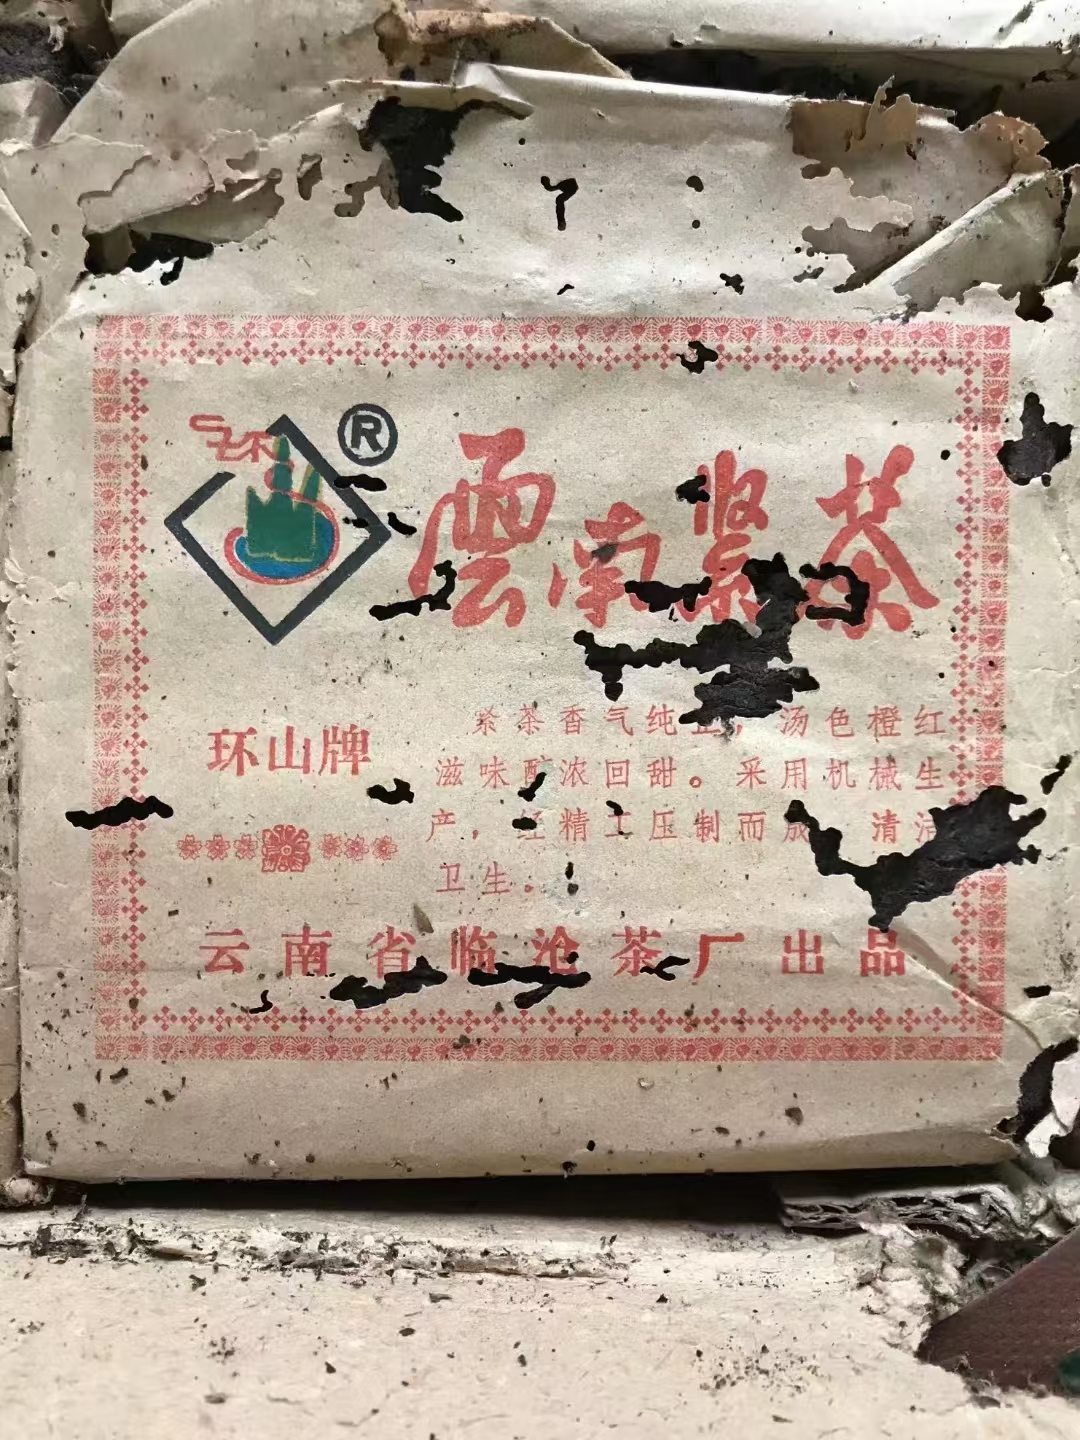 ®
雲南紧茶
环山牌
紧茶香气纯正，汤色橙红
滋味醇浓回甜。采用机械生
产，经精工压制而成 清洁
卫生。
云南省临沧茶厂出品